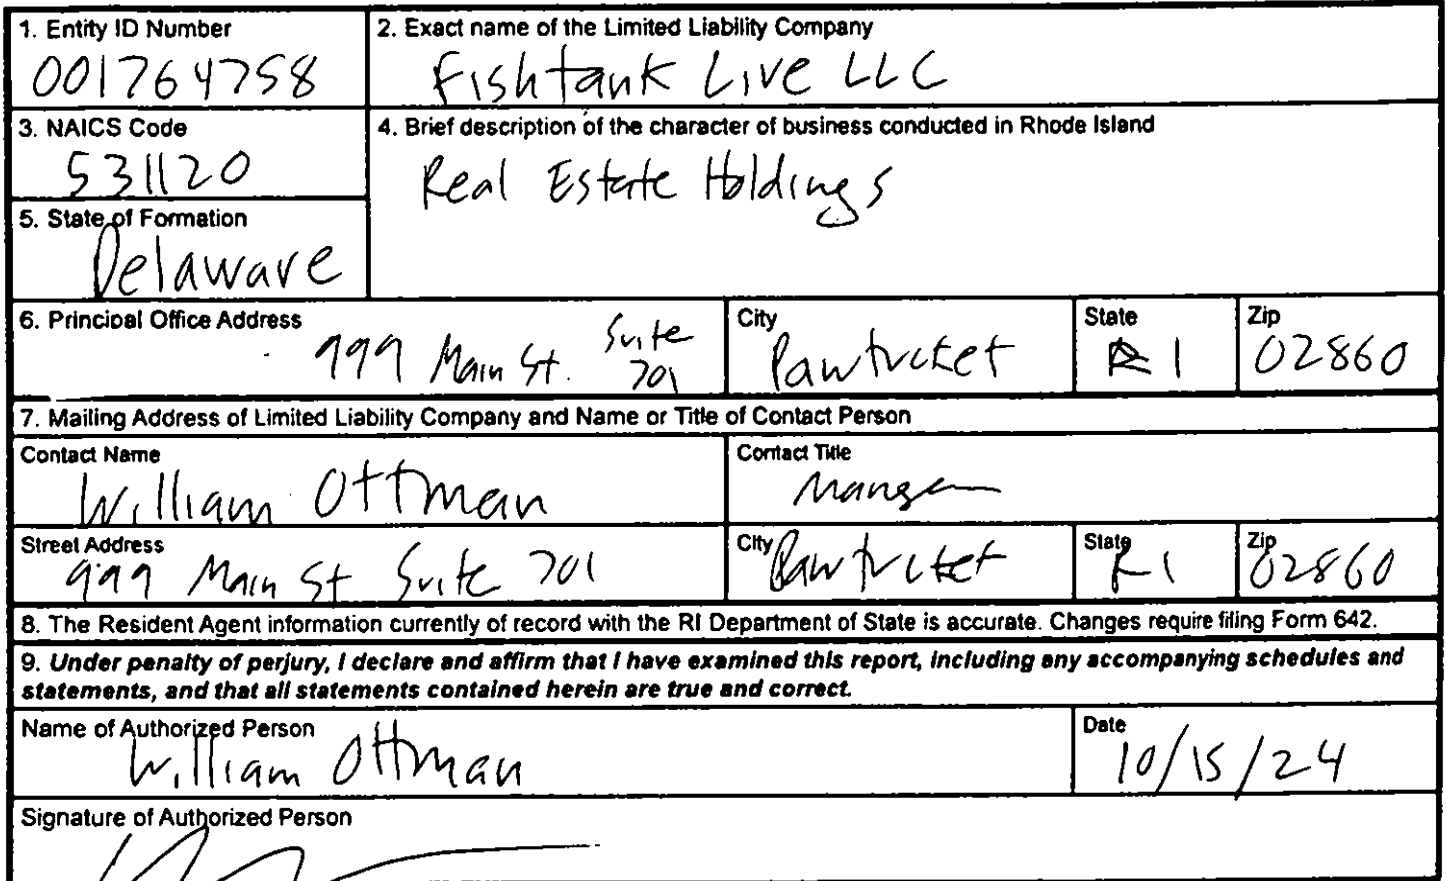 1. Entity ID Number
001764758
2. Exact name of the Limited Liability Company
Fishtank Live LLC
3. NAICS Code
531120
4. Brief description of the character of business conducted in Rhode Island
Real Estate Holdings
5. State of Formation
Delaware
6. Principal Office Address
999 Main St. Suite 701
City
Pawtucket
State
RI
Zip
02860
7. Mailing Address of Limited Liability Company and Name or Title of Contact Person
Contact Name
William Ottman
Contact Title
Street Address
999 Main St Suite 701
City
Pawtucket
State
RI
Zip
02860
8. The Resident Agent information currently of record with the RI Department of State is accurate. Changes require filing Form 642.
9. Under penalty of perjury, I declare and affirm that I have examined this report, including any accompanying schedules and
statements, and that all statements contained herein are true and correct.
Name of Authorized Person
William Ottman
Date
10/15/24
Signature of Authorized Person